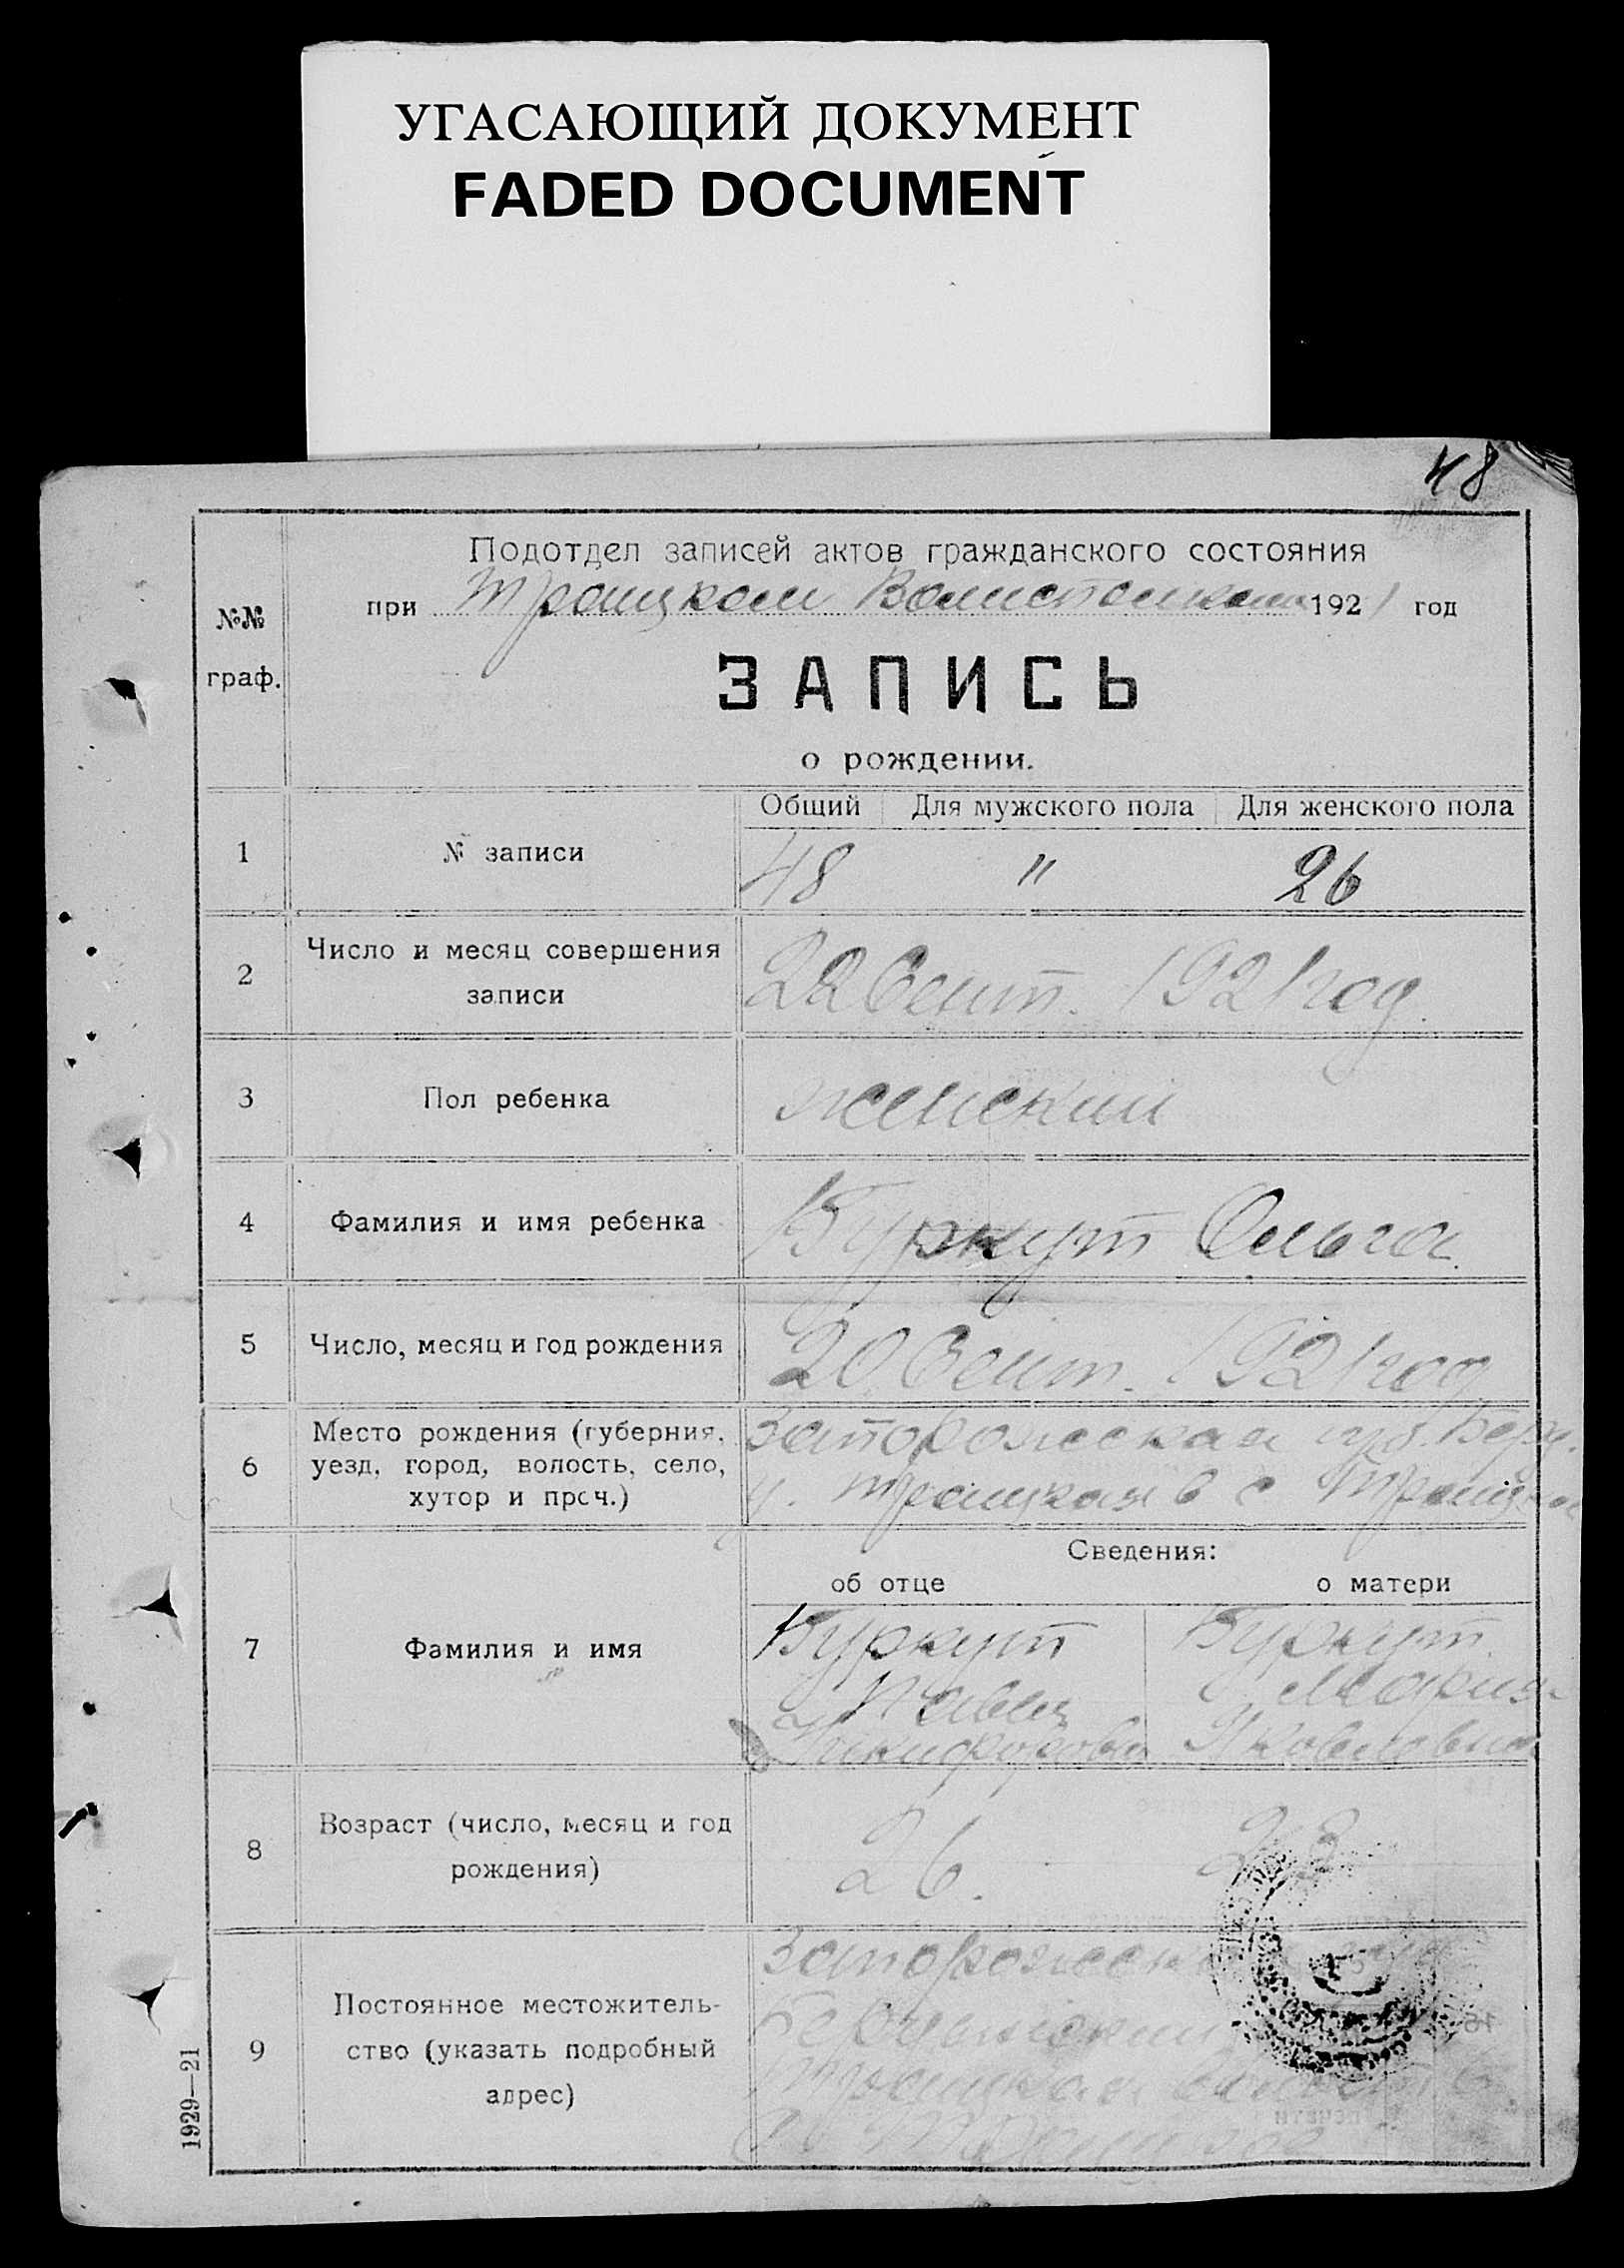 УГАСАЮЩИЙ ДОКУМЕНТ
FADED DOCUMENT
48
Подотдел записей актов гражданского состояния
при Троицком 1921 год
№№
граф.
ЗАПИСЬ
о рождении.
Общий Для мужского пола Для женского пола
1 № записи 48 " 26
2 Число и месяц совершения
записи
22 Сент. 1921 год.
3 Пол ребенка женский
4 Фамилия и имя ребенка Буркут Ольга
5 Число, месяц и год рождения 20 Сент. 1921 год
6 Место рождения (губерния,
уезд, город, волость, село,
хутор и проч.)
Запорожская губ. Берд.
у. Троицкая в с
Сведения:
об отце о матери
7 Фамилия и имя
Буркут Буркут
Павел Мария
Яковлевна
8 Возраст (число, месяц и год
рождения)
26. 28
9 Постоянное местожитель-
ство (указать подробный
адрес)
Троицкая
1929—21